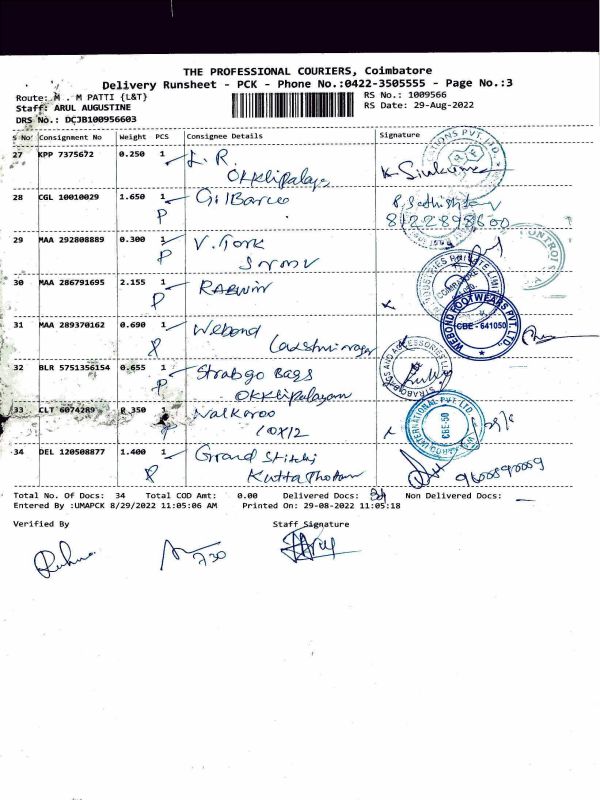 THE PROFESSIONAL COURIERS, Coimbatore
Delivery Runsheet - PCK - Phone No.:0422-3505555 - Page No.:3
Route: M . M PATTI {L&T} RS No.: 1009566
Staff: ARUL AUGUSTINE RS Date: 29-Aug-2022
DRS No.: DCJB100956603
S No Consignment No Weight PCS Consignee Details Signature
27 KPP 7375672 0.250 1 L. R.
28 CGL 10010029 1.650 1 Gilbarco
P 8122898600
29 MAA 292808889 0.300 1 V. Tork
P
30 MAA 286791695 2.155 1
P
31 MAA 289370162 0.690 1 Webond
P Lakshmi nagar
WEBOND FOOTWEARS PVT. LTD.
CBE - 641050
32 BLR 5751356154 0.655 1 Strabgo Bags
P Okkilipalayam
33 CLT 6074289 0.350 1 Walkaroo
10X12
INTERNATIONAL PVT. LTD.
CBE-50
34 DEL 120508877 1.400 1 Grand
P 9600890009
Total No. Of Docs: 34 Total COD Amt: 0.00 Delivered Docs: Non Delivered Docs:
Entered By :UMAPCK 8/29/2022 11:05:06 AM Printed On: 29-08-2022 11:05:18
Verified By Staff Signature
730